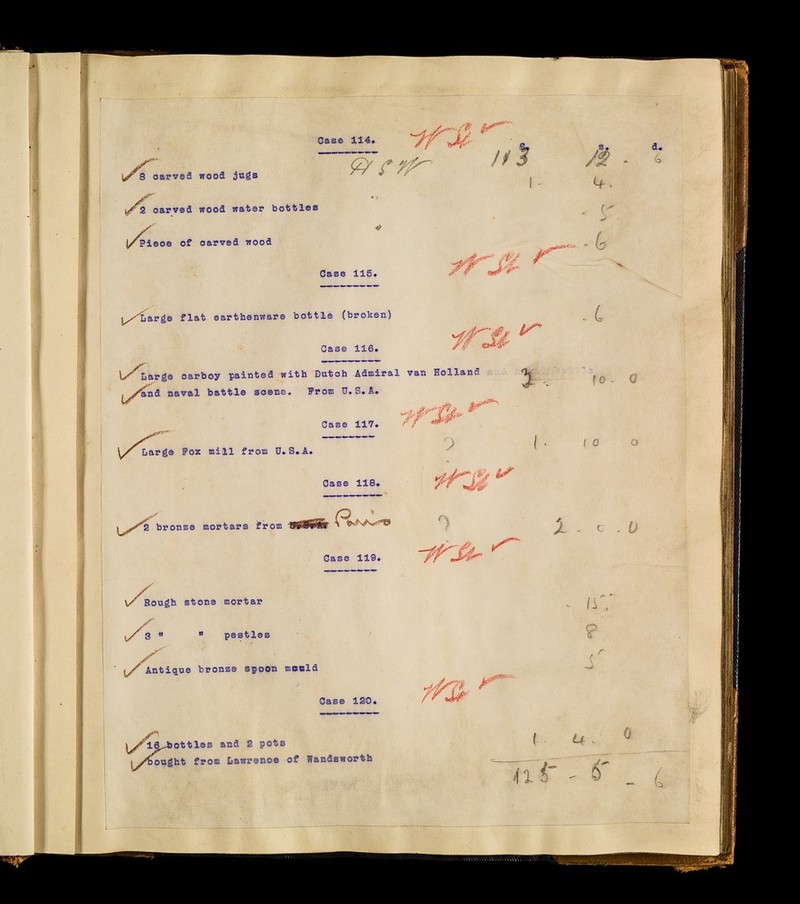 Case 114. W St ✓
£. s. d.
H S W 113 12 . 6
✓ 8 carved wood jugs 1 - 4 .
✓ 2 carved wood water bottles - 5
✓ Piece of carved wood - 6
Case 115. W St ✓
✓ Large flat earthenware bottle (broken) - 6
Case 116. W St ✓
✓ Large carboy painted with Dutch Admiral van Holland 10 - 0
✓ and naval battle scene. From U.S.A.
Case 117. W St ✓
✓ Large Fox mill from U.S.A. ? 1 . 10 0
Case 118. W St ✓
✓ 2 bronze mortars from U.S.A. Paris ? 2 . 0 . 0
Case 119. W St ✓
✓ Rough stone mortar - 15 .
✓ 3 " " pestles 8
✓ Antique bronze spoon mould 5
Case 120. W St ✓
✓ 16 bottles and 2 pots 1 . 4 . 0
✓ bought from Lawrence of Wandsworth
125 - 5 - 6